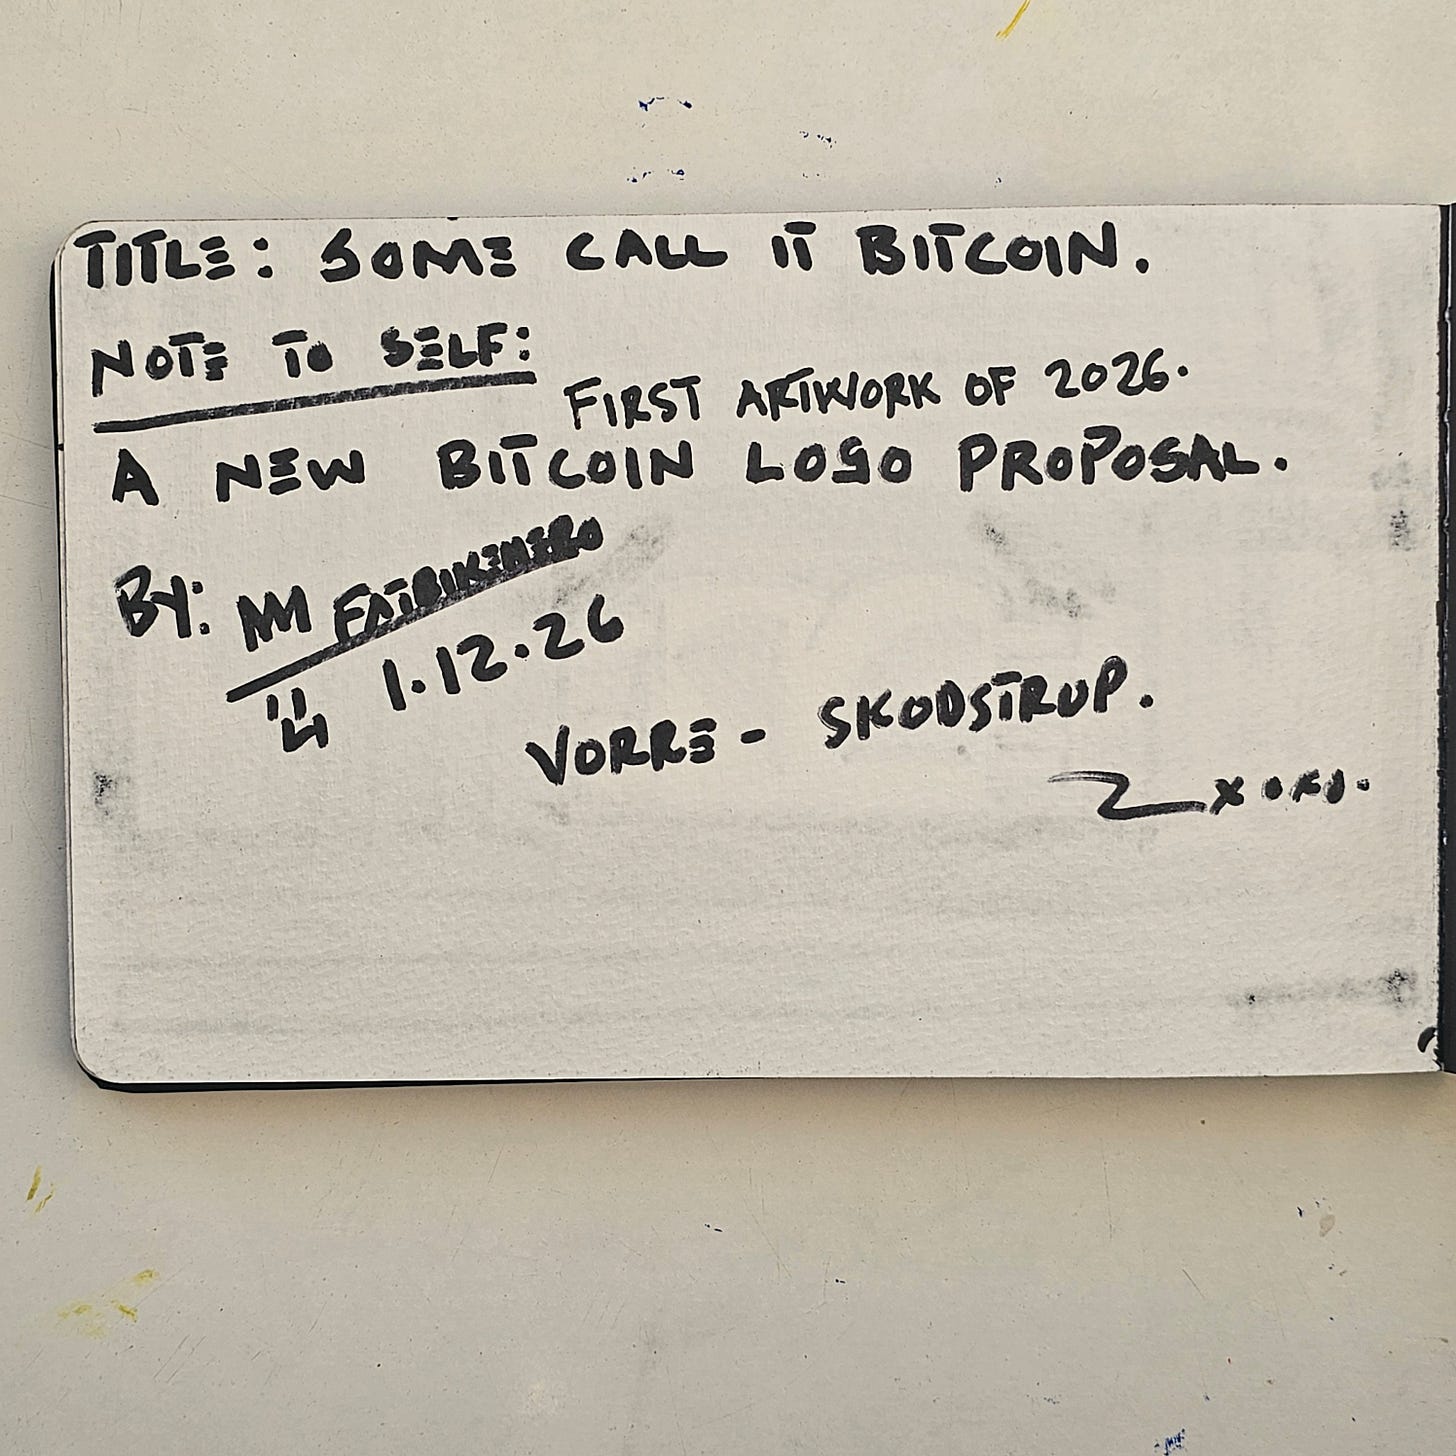 TITLE: SOME CALL IT BITCOIN.
NOTE TO SELF:
FIRST ARTWORK OF 2026.
A NEW BITCOIN LOGO PROPOSAL.
BY: FATBIKEHERO
1.12.26
VORRE - SKODSTRUP.
xoxo.